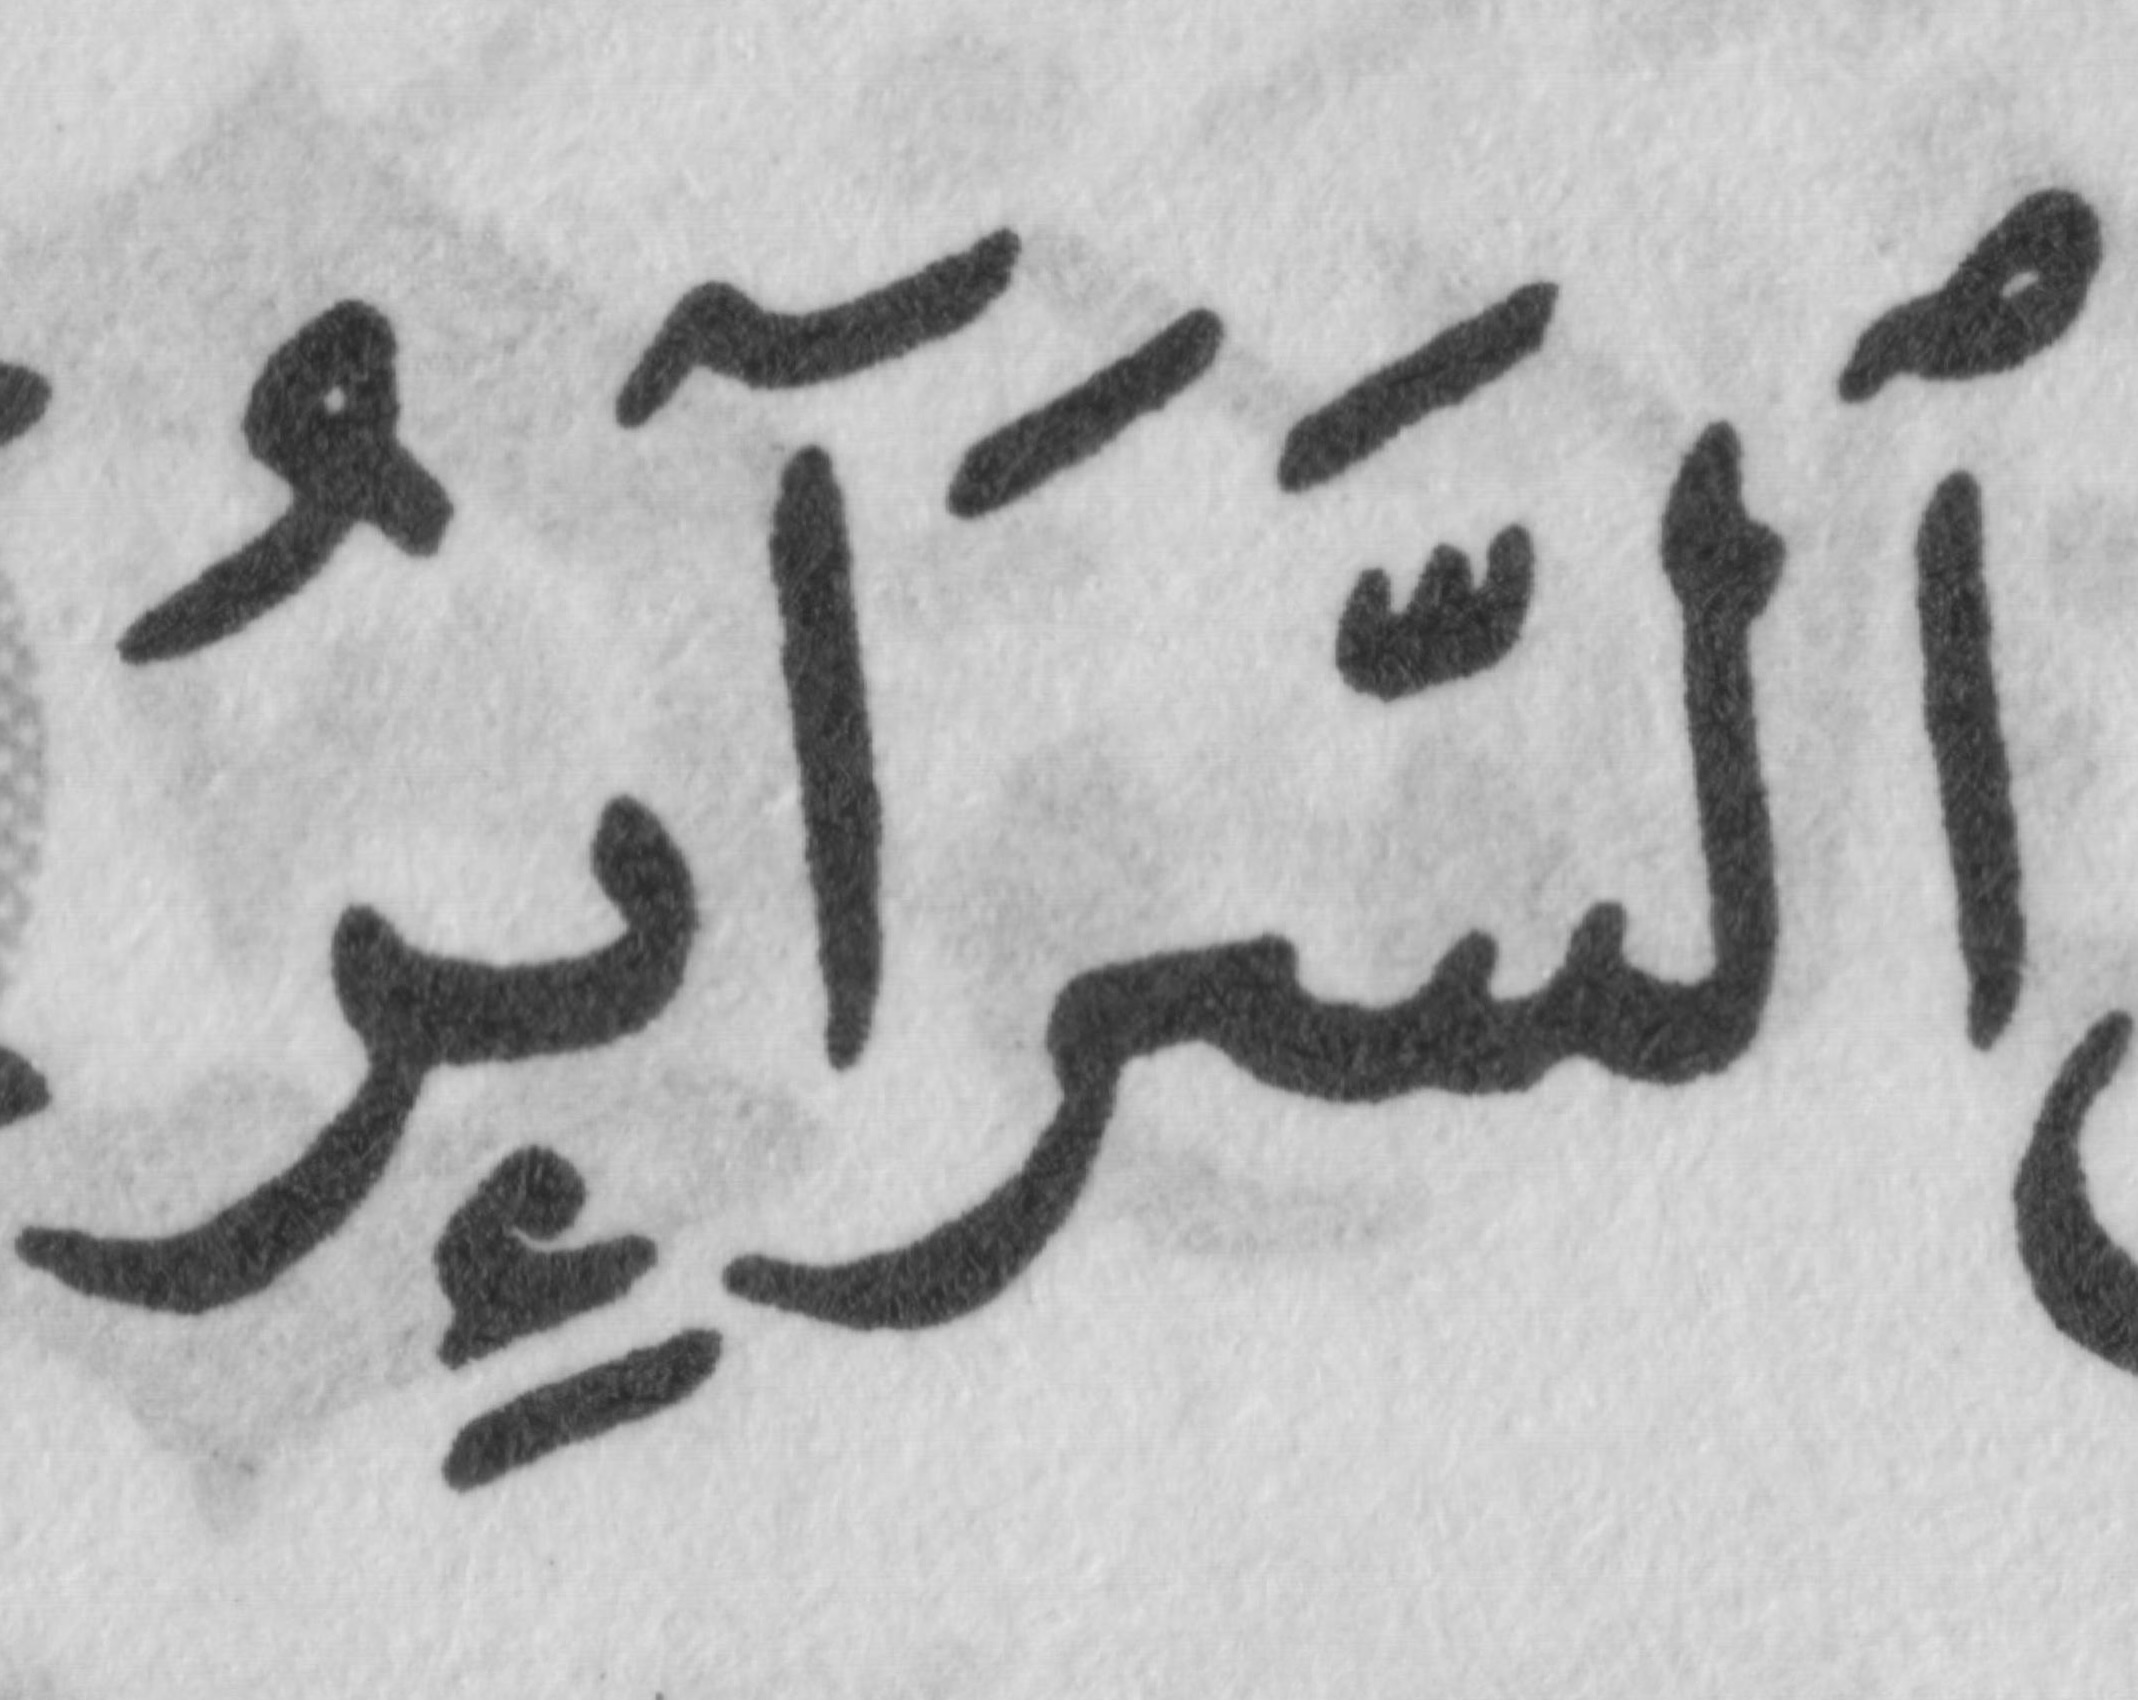 ٱلسَّرَآئِرُ